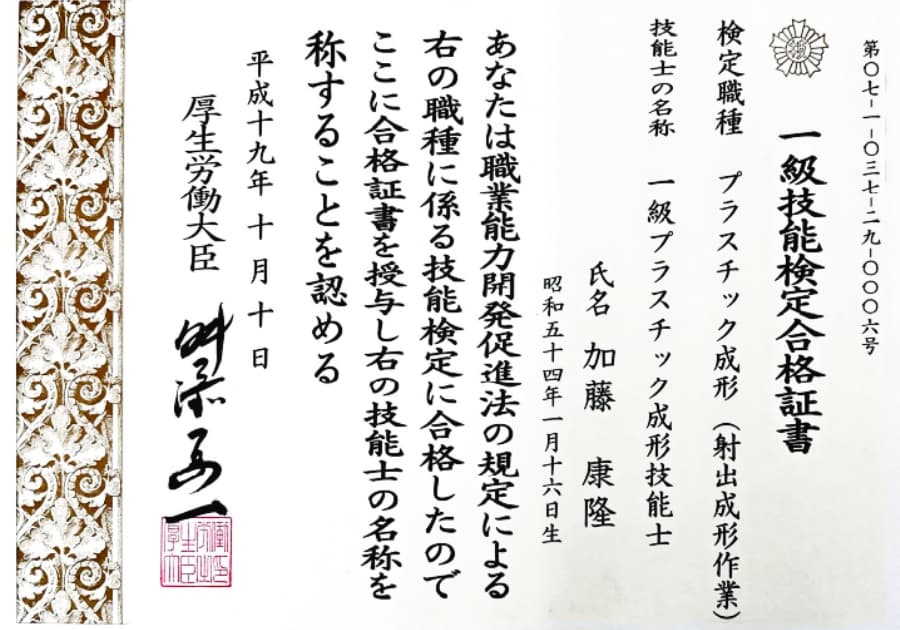 第〇七-一-〇三七-二九-〇〇〇六号
一級技能検定合格証書
検定職種 プラスチック成形(射出成形作業)
技能士の名称 一級プラスチック成形技能士
氏名 加藤 康隆
昭和五十四年一月十六日生
あなたは職業能力開発促進法の規定による
右の職種に係る技能検定に合格したので
ここに合格証書を授与し右の技能士の名称を
称することを認める
平成十九年十月十日
厚生労働大臣
舛添要一